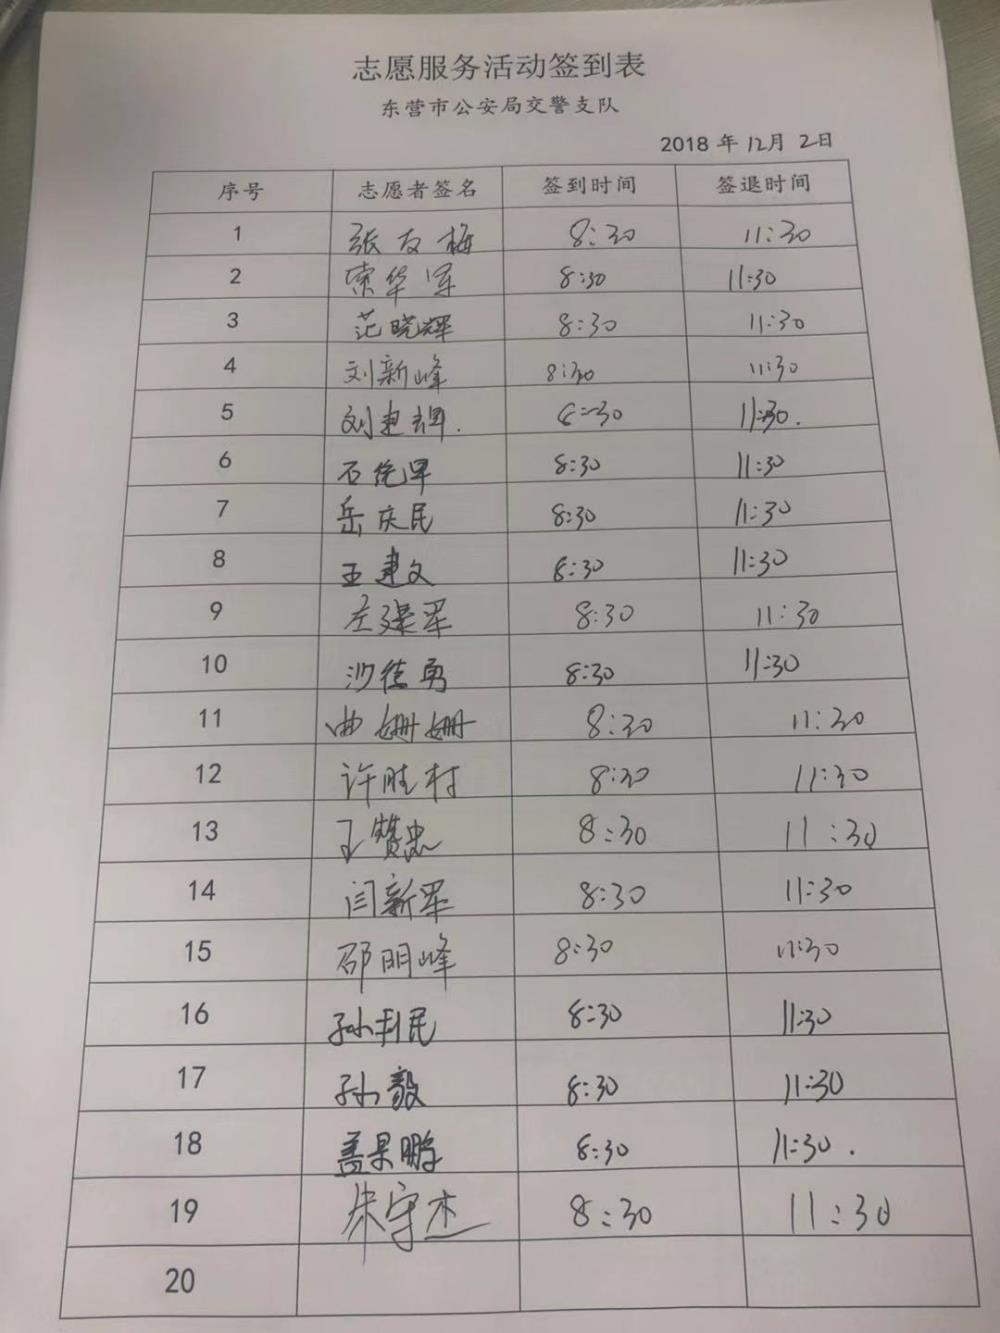 志愿服务活动签到表
东营市公安局交警支队
2018 年 12月 2日
序号 志愿者签名 签到时间 签退时间
1 张友梅 8:30 11:30
2 索华军 8:30 11:30
3 范晓辉 8:30 11:30
4 刘新峰 8:30 11:30
5 刘建辉. 8:30 11:30.
6 石 8:30 11:30
7 岳庆民 8:30 11:30
8 王建文 8:30 11:30
9 左建军 8:30 11:30
10 沙德勇 8:30 11:30
11 曲姗姗 8:30 11:30
12 许胜村 8:30 11:30
13 王赞忠 8:30 11:30
14 闫新军 8:30 11:30
15 邵明峰 8:30 11:30
16 孙利民 8:30 11:30
17 孙毅 8:30 11:30
18 盖景鹏 8:30 11:30.
19 朱守杰 8:30 11:30
20